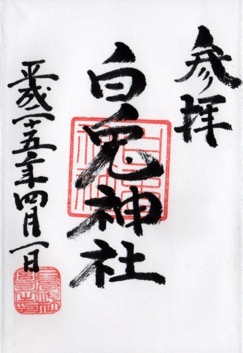 参拝
白兎神社
平成二十五年四月一日